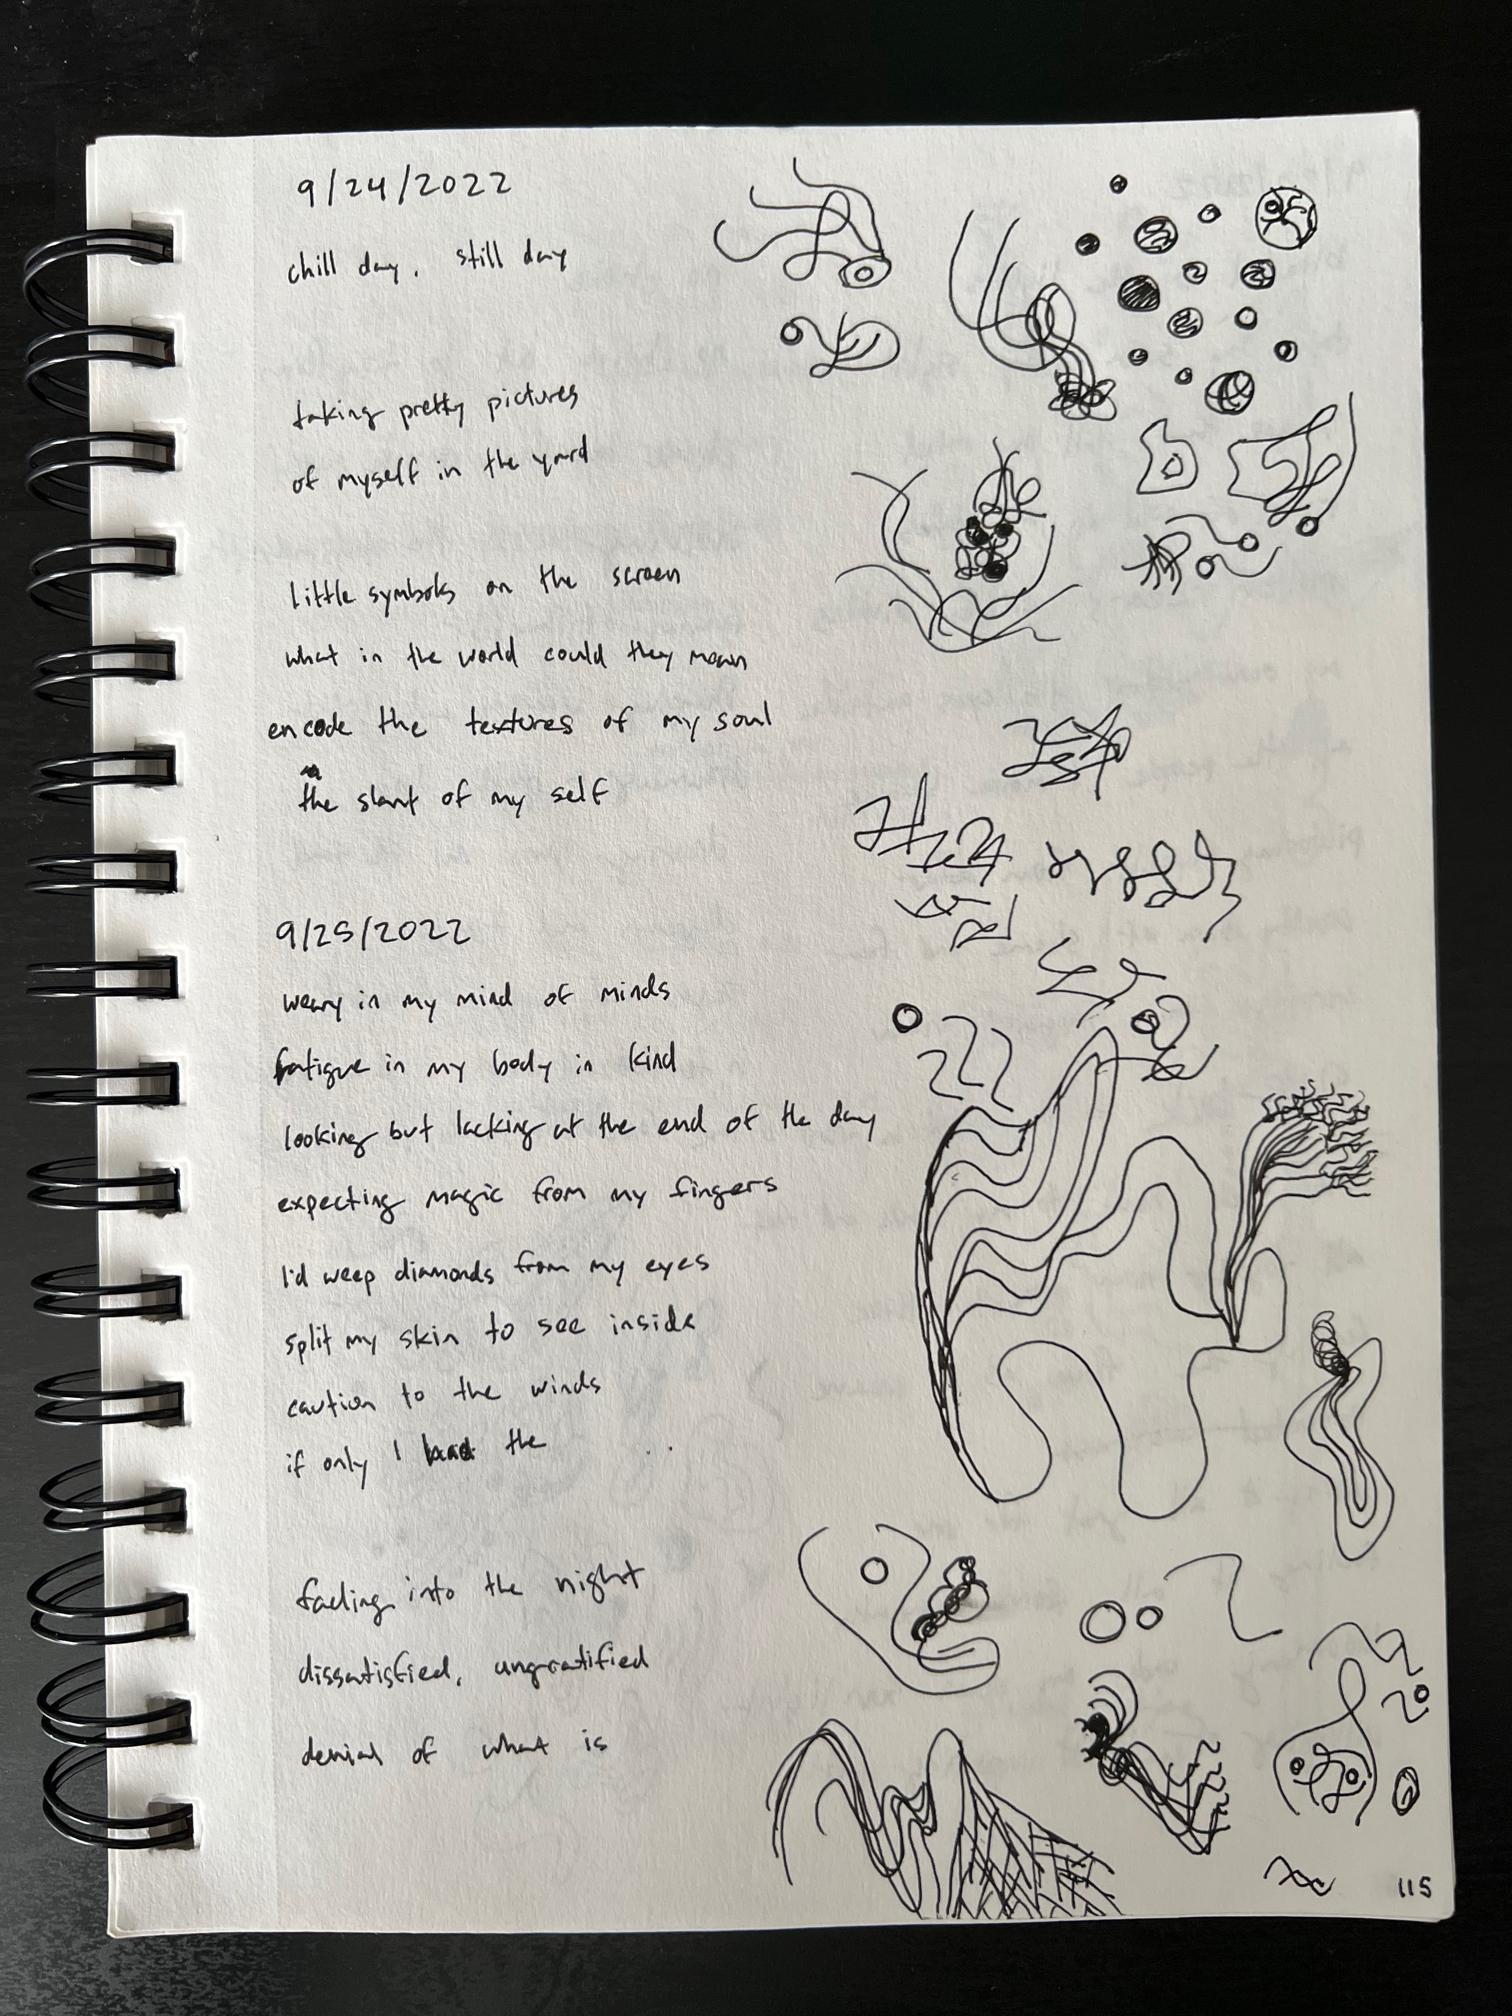 9/24/2022
chill day. still day
taking pretty pictures
of myself in the yard
little symbols on the screen
what in the world could they mean
encode the textures of my soul
the slant of my self
9/25/2022
weary in my mind of minds
fatigue in my body in kind
looking but lacking at the end of the day
expecting magic from my fingers
I'd weep diamonds from my eyes
split my skin to see inside
caution to the winds
if only I had the
fading into the night
dissatisfied, ungratified
denial of what is
115